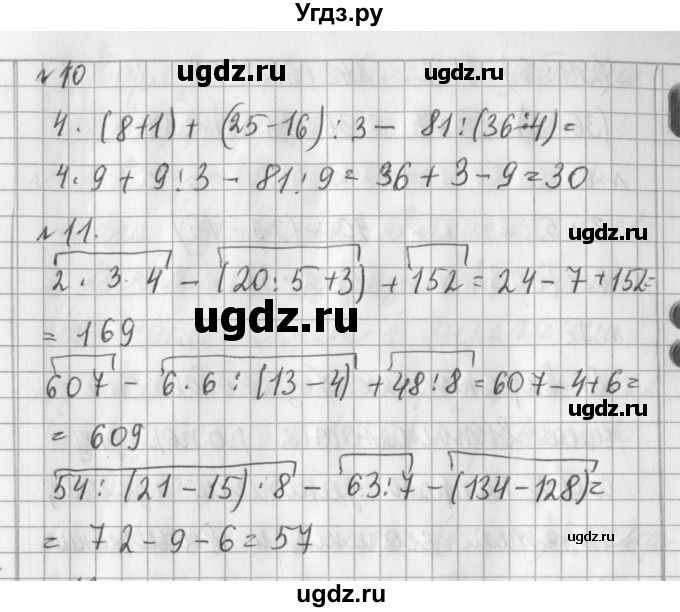 Угдз.ру
№10
4·(8+1)+(25-16):3-81:(36:4)=
4·9+9:3-81:9=36+3-9=30
№11.
2·3·4-(20:5+3)+152=24-7+152=
=169
607-6·6:(13-4)+48:8=607-4+6=
=609
54:(21-15)·8-63:7-(134-128)=
=72-9-6=57
ugdz.ru
ugdz.ru
ugdz.ru
ugdz.ru
ugdz.ru
ugdz.ru
ugdz.ru
ugdz.ru